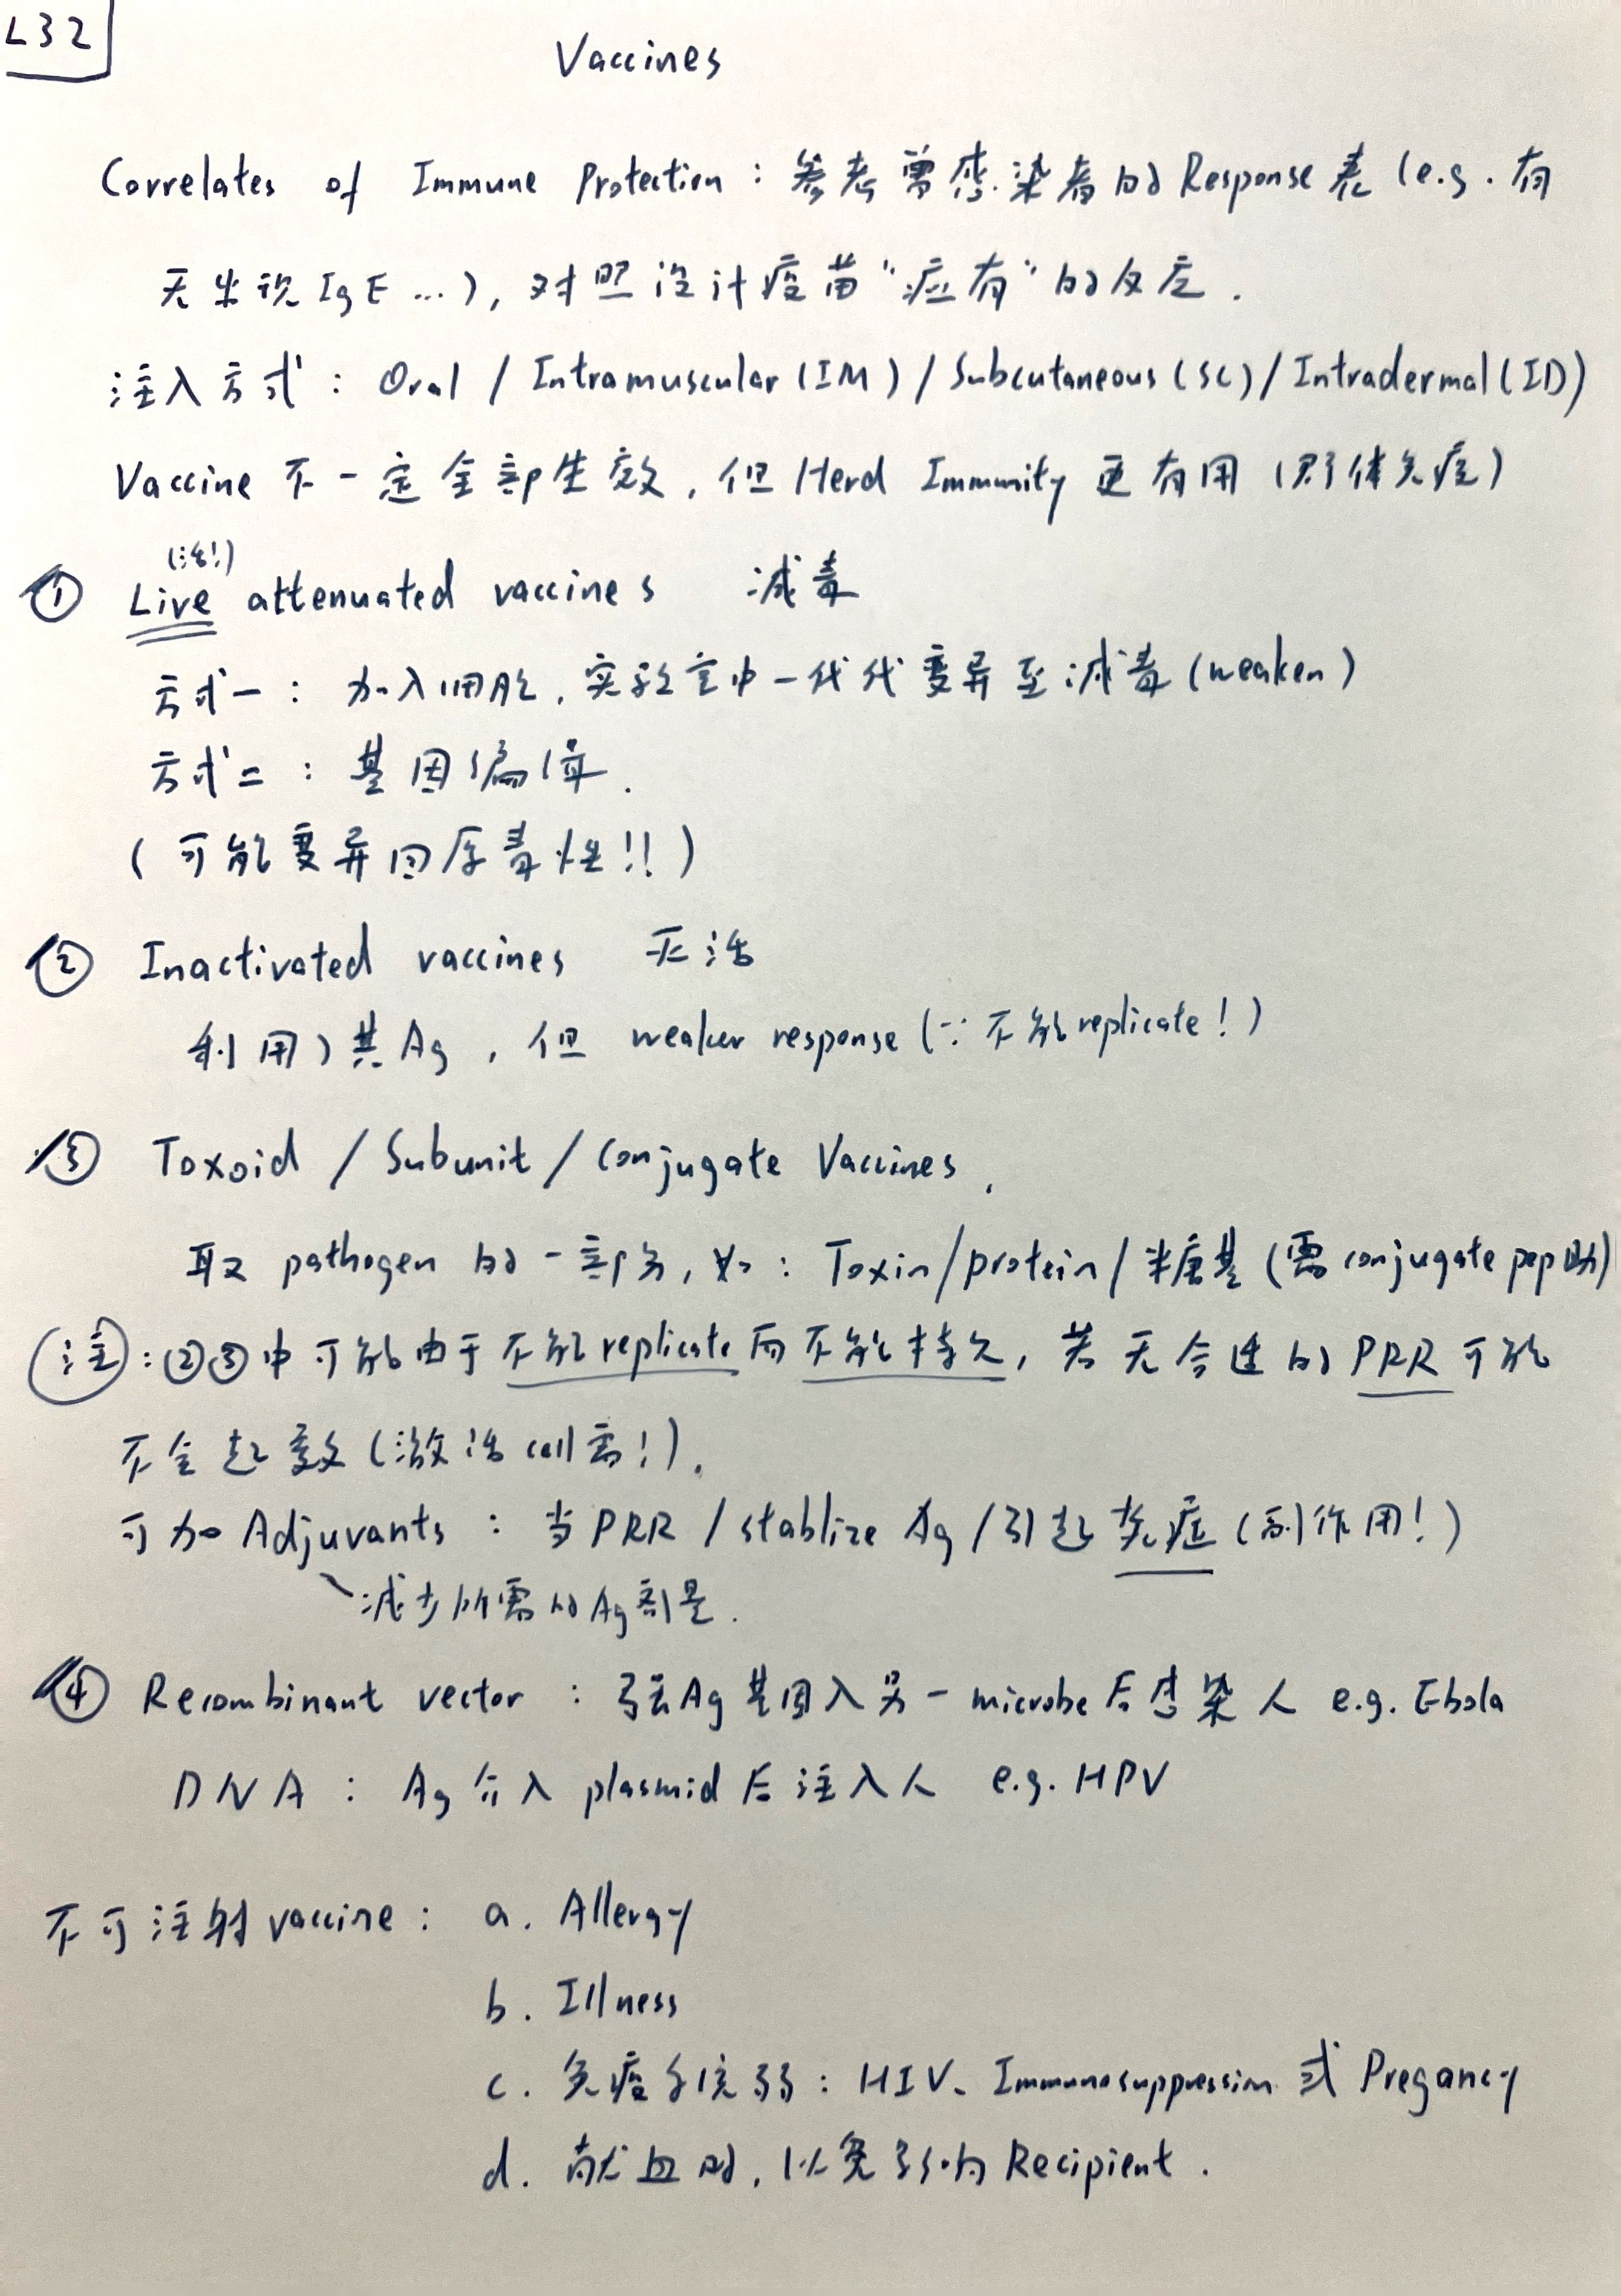 L32
Vaccines
Correlates of Immune Protection : 参考曾感染者的Response表 (e.g. 有
无出现IgE ...), 对照设计疫苗"应有"的反应.
注入方式 : Oral / Intramuscular (IM) / Subcutaneous (SC) / Intradermal (ID)
Vaccine 不一定全部生效, 但 Herd Immunity 更有用 (群体免疫)
(活!)
① Live attenuated vaccines 减毒
方式一 : 加入细胞, 实验室中一代代变异至减毒 (weaken)
方式二 : 基因编译.
( 可能变异回原毒性!! )
② Inactivated vaccines 灭活
利用其Ag, 但 weaker response (∵ 不能replicate! )
③ Toxoid / Subunit / Conjugate Vaccines.
取 pathogen 的一部分, 如 : Toxin/protein/糖基 (需conjugate pep助)
注 : ②③中可能由于不能replicate而不能持久, 若无合适的PRR可能
不会起效 (激活cell需!).
可加 Adjuvants : 当PRR / stablize Ag / 引起炎症 (副作用! )
减少所需的Ag剂量.
④ Recombinant vector : Ag基因入另一microbe后感染人 e.g. Ebola
DNA : Ag 入 plasmid后注入人 e.g. HPV
不可注射vaccine : a. Allergy
b. Illness
c. 免疫系统弱 : HIV、Immunosuppression 或 Pregancy
d. 献血时, 以免影响 Recipient.